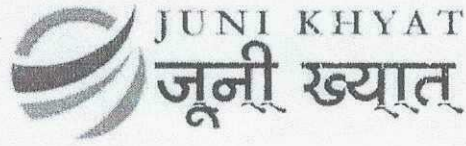 JUNI KHYAT
जूनी ख्यात्